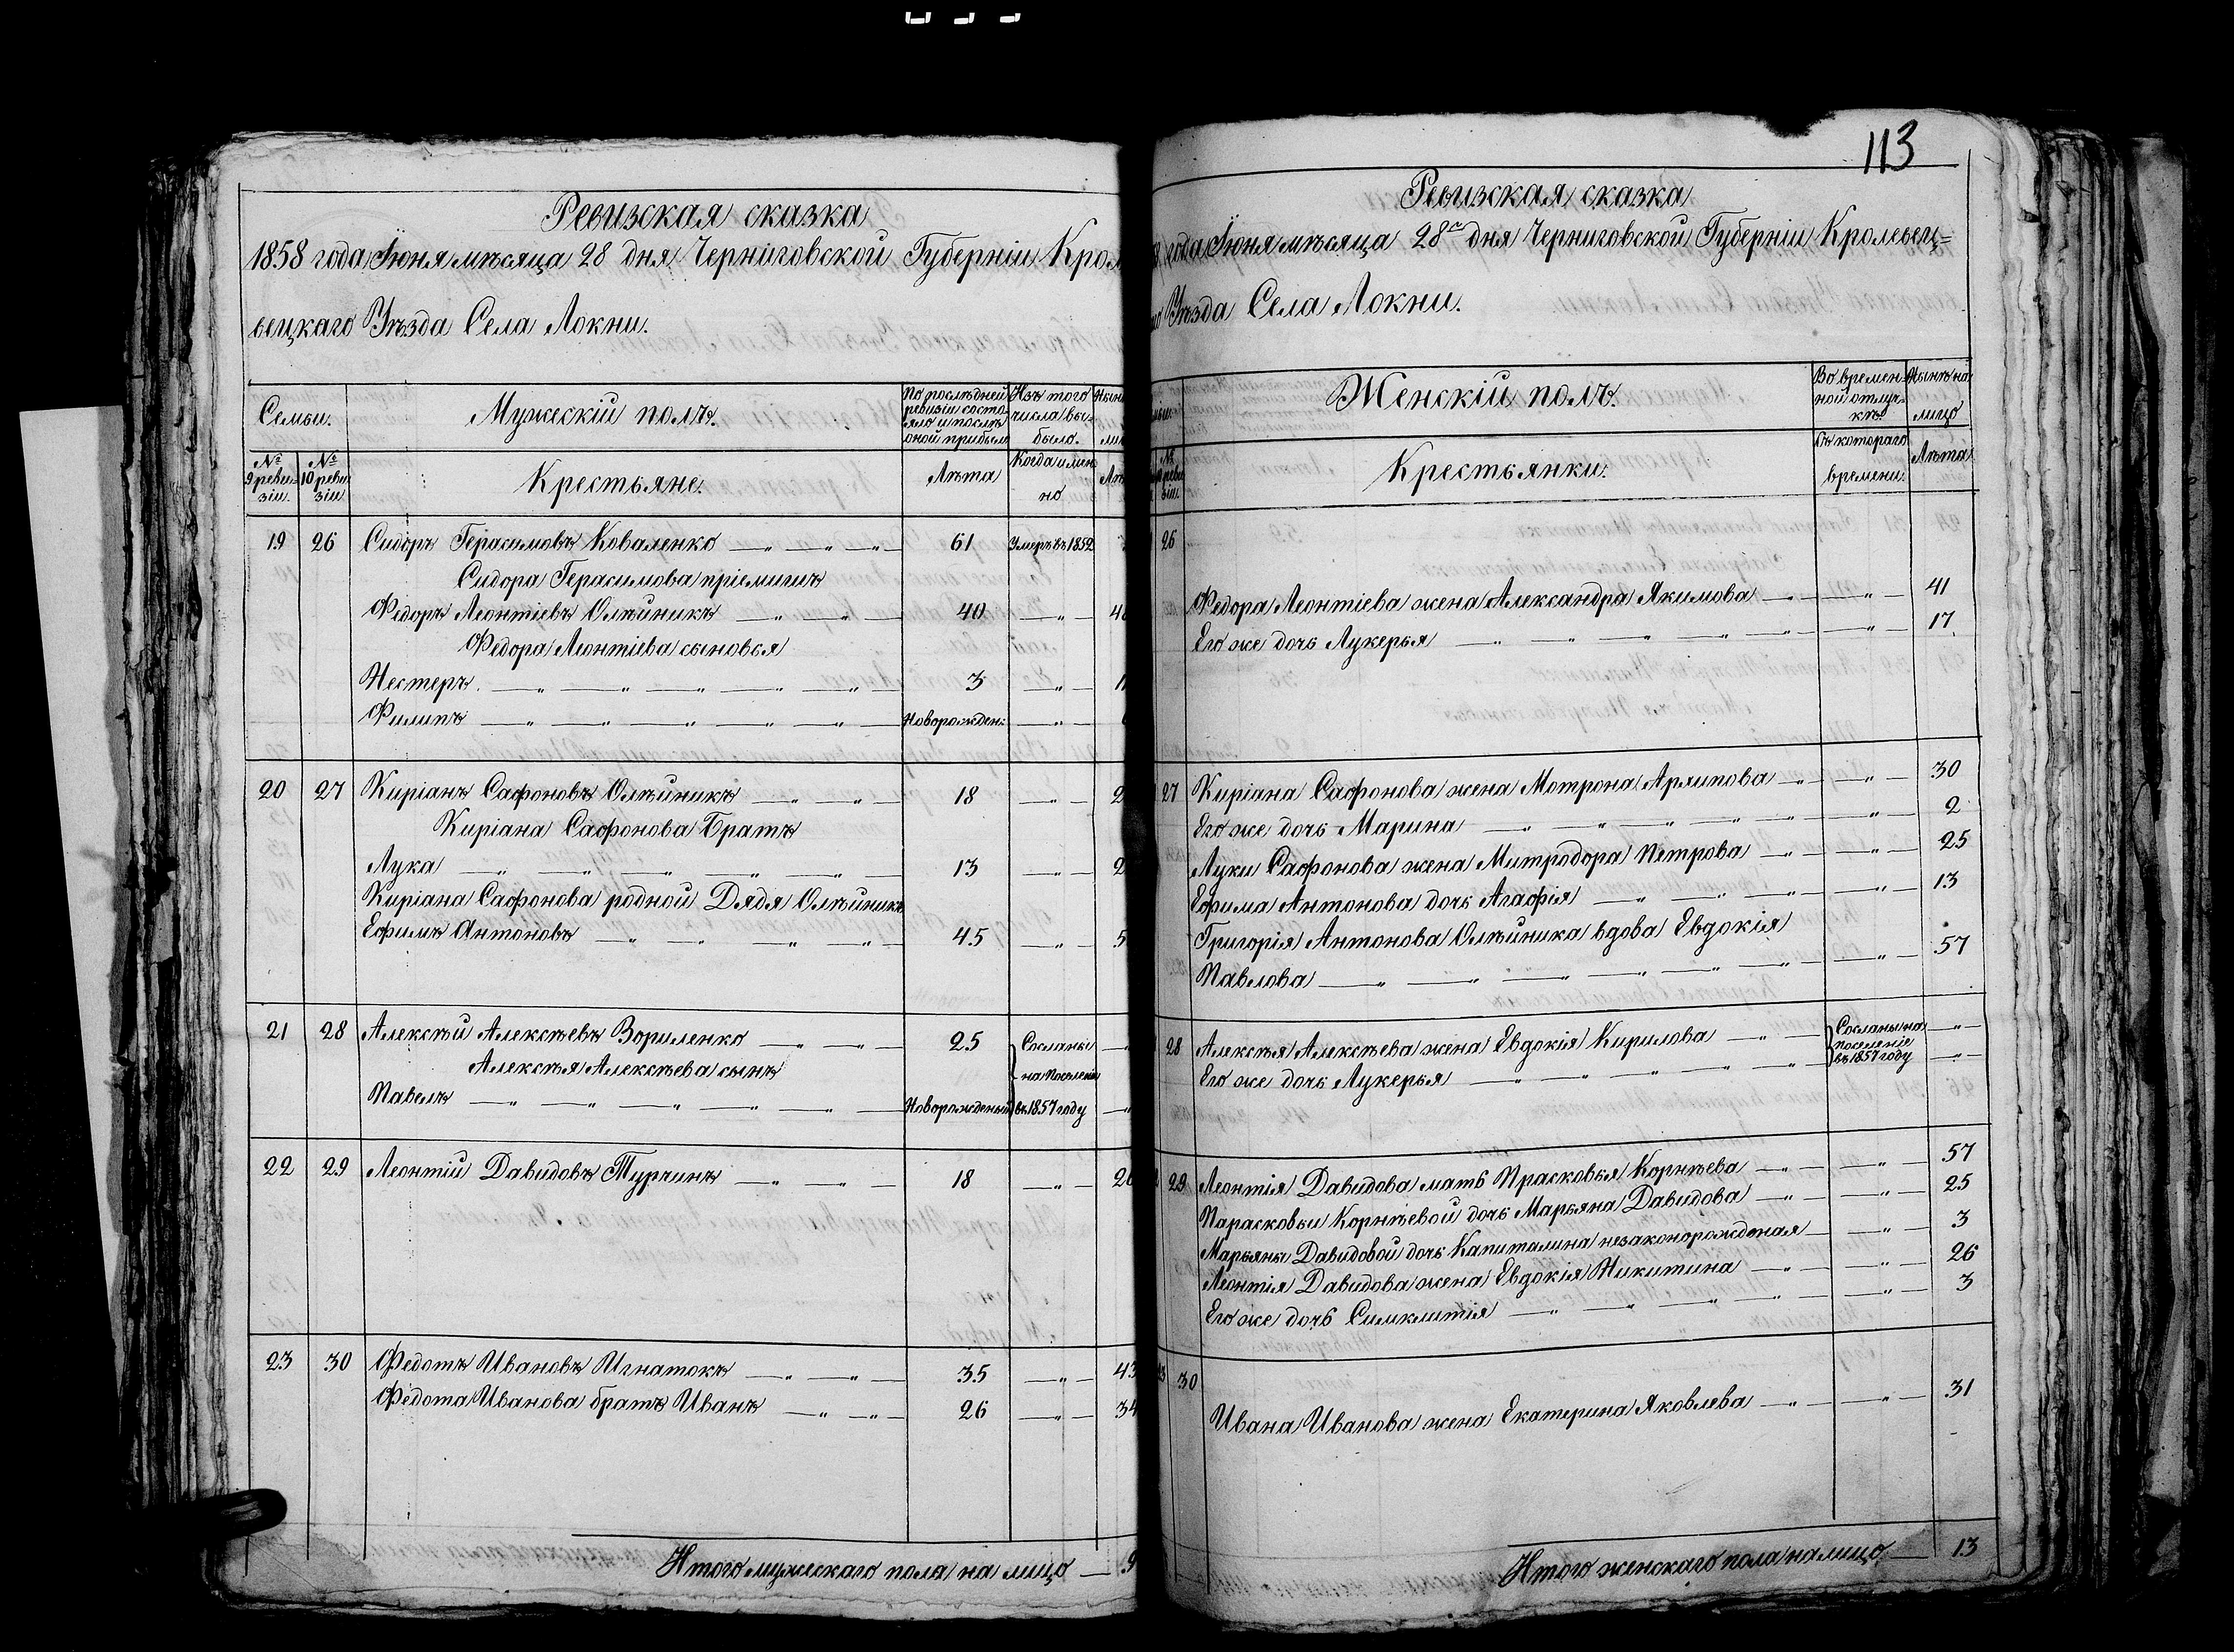 113
Ревизская сказка
1858 года Іюня мѣсяца 28 дня Черниговской Губерніи Крол
вецкаго Уѣзда Села Локни.
Семьи.
Мужескій полъ.
По послѣдней ревизіи состояло и послѣ оной прибыло
Изъ того числа выбыло.
№ 9 ревизіи.
№ 10 ревизіи
Крестьяне.
Лѣта
Когда имено
19 26 Сидоръ Герасимовъ Коваленко 61 Умеръ въ 1852
Сидора Герасимова пріемишъ
Федоръ Леонтіевъ Олѣйникъ 40
Федора Леонтіева сыновья
Нестеръ 3
Филипъ Новорожден:
20 27 Киріанъ Сафоновъ Олѣйникъ 18
Киріана Сафонова Братъ
Лука 13
Киріана Сафонова родной Дядя Олѣйникъ
Ефимъ Антоновъ 45
21 28 Алексѣй Алексѣевъ Вориленко 25 Сосланы
Алексѣя Алексѣева сынъ на Поселеніе
Павелъ Новорожденый въ 1857 году
22 29 Леонтій Давидовъ Турчинъ 18
23 30 Федотъ Ивановъ Игнатокъ 35 43
Федота Иванова братъ Иванъ 26 34
Итого мужескаго пола на лицо 9
Ревизская сказка
года Іюня мѣсяца 28го дня Черниговской Губерніи Кролевец=
Уѣзда Села Локни.
Женскій полъ.
Во временной отлучкѣ.
Нынѣ на лицо
Крестьянки.
Съ котораго времени.
Лѣта
26
Федора Леонтіева жена Александра Якимова 41
Его же дочь Лукерья 17
27 Киріана Сафонова жена Мотрона Архипова 30
Его же дочь Марина 2
Луки Сафонова жена Митродора Петрова 25
Ефима Антонова дочь Агафія 13
Григорія Антонова Олѣйника вдова Евдокія
Павлова 57
28 Алексѣя Алексѣева жена Евдокія Кирилова Сосланы на поселеніе въ 1857 году
Его же дочь Лукерья
29 Леонтія Давидова мать Прасковья Корнѣева 57
Парасковьи Корнѣевой дочь Марьяна Давидова 25
Марьяны Давидовой дочь Капиталина незаконорожденая 3
Леонтія Давидова жена Евдокія Никитина 26
Его же дочь Симклитія 3
30
Ивана Иванова жена Екатерина Яковлева 31
Итого женскаго пола на лицо 13